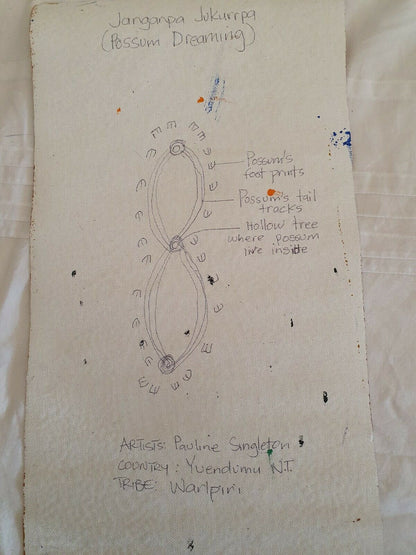 Janganpa Jukurrpa
(Possum Dreaming)
Possum's
foot prints
Possum's tail
tracks
Hollow tree
where possum
live inside
ARTISTS: Pauline Singleton
COUNTRY: Yuendumu N.T.
TRIBE: Warlpiri